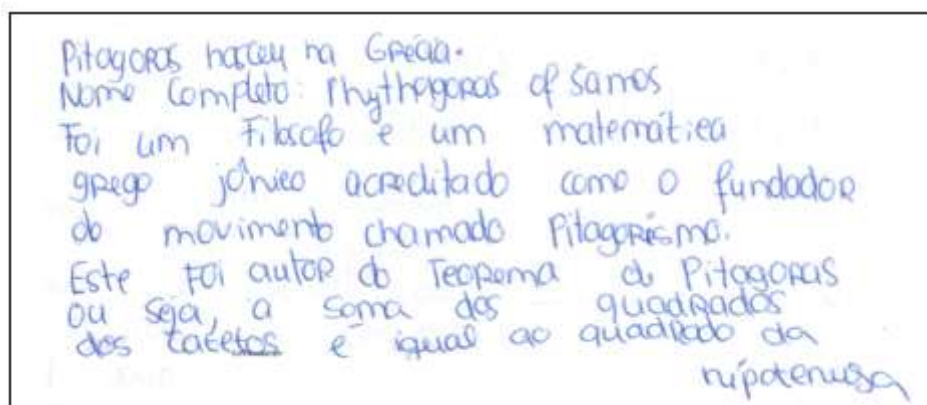 Pitagoras nasceu na Grécia.
Nome Completo: Phythagoras of Samos
Foi um Filosofo e um matemática
grego jônico acreditado como o fundador
do movimento chamado Pitagorismo.
Este Foi autor do Teorema de Pitagoras
ou seja, a soma dos quadrados
dos catetos e igual ao quadrado da
hipotenusa